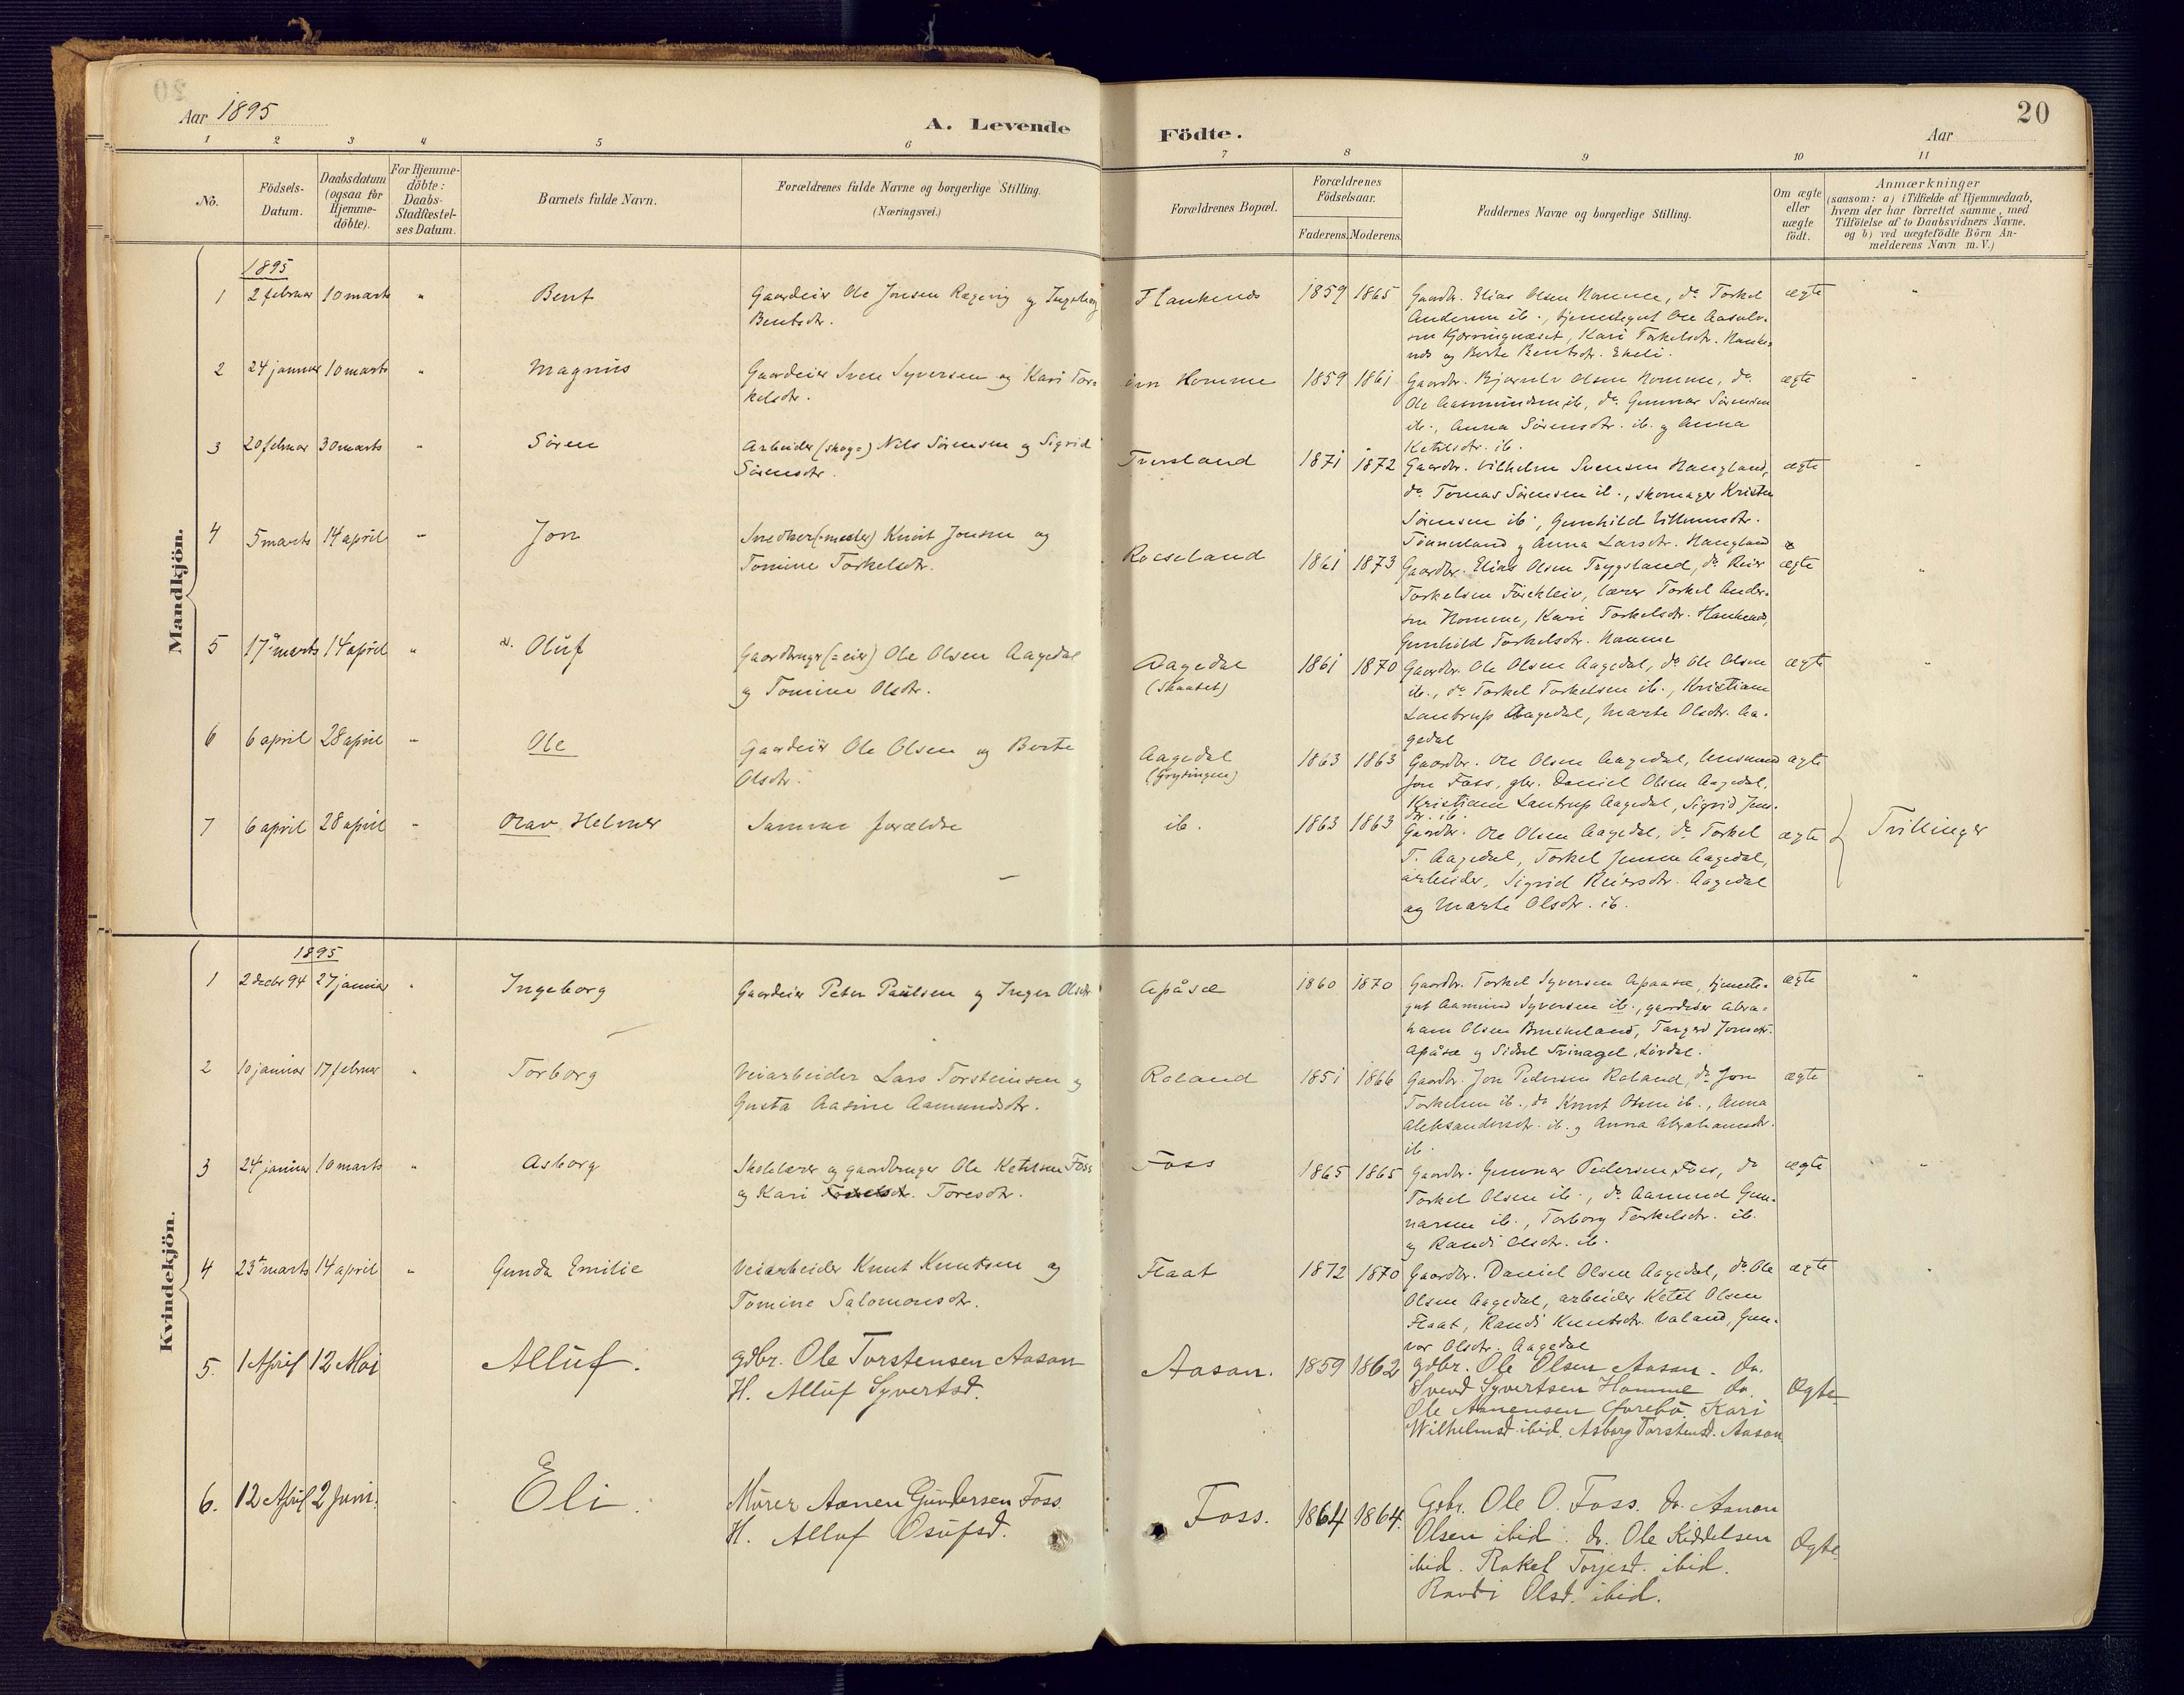 Aar 1895
A. Levende
Födte.
Aar
20
1 2 3 4 5 6 7 8 9 10 11
No.
Födsels-
Datum.
Daabsdatum
(ogsaa for
Hjemme-
döbte).
For Hjemme-
döbte:
Daabs-
Stadfæstel-
ses Datum.
Barnets fulde Navn.
Forældrenes fulde Navne og borgerlige Stilling.
(Næringsvei.)
Forældrenes Bopæl.
Forældrenes
Födselsaar.
Faderens. Moderens.
Faddernes Navne og borgerlige Stilling.
Om ægte
eller
uægte
födt.
Anmærkninger
(saasom: a) i Tilfælde af Hjemmedaab,
hvem der har forrettet samme, med
Tilföielse af to Daabsvidners Navne.
og b) ved uægtefödte Börn An-
melderens Navn m. V.)
Mandkjön.
1895
1 2 februar 10 marts " Bent
Gaardeier Ole Jonsen Røgevig og Ingeborg
Bentsdtr.
1859 1865
Gaardbr. Elias Olsen Homme, do Torkel
Andersen ib., tjenestegut Ole Aasulv-
sen Kjerringnæset, Kari Torkelsdtr. Hanke-
nds og Berte Bentsdtr. Eheli.
ægte "
2 24 januar 10 marts " Magnus
Gaardeier Sven Syversen og Kari Tor-
kelsdtr.
Homme 1859 1861
Gaardbr. Bjørnulv Olsen Homme, do
Ole Aasmundsen ib., do Gunnar Sørensen
ib., Anna Sørensdtr. ib. og Anna
Ketilsdtr. ib.
ægte "
3 20 februar 30 marts " Sören
Arbeider (skog=) Nils Sörensen og Sigrid
Sörensdtr.
Tversland 1871 1872
Gaardbr. Vilhelm Svensen Haugland,
do Tomas Sörensen ib., skomager Kristen
Sörensen ib., Gunhild Villumsdtr.
Tönnesland og Anna Larsdtr. Haugland
ægte "
4 5 marts 14 april " Jon
Snedker(=mester) Knut Jonsen og
Tomine Torkelsdtr.
Roeseland 1861 1873
Gaardbr. Elias Olsen Trygsland, do Reier
Torkelsen Förekleiv, lærer Torkel Ander-
sen Homme, Kari Torkelsdtr. Hankenes,
Gunhild Torkelsdtr. Homme
ægte "
5 17 marts 14 april " Oluf
Gaardbruger (=eier) Ole Olsen Aagedal
og Tomine Olsdtr.
Aagedal
(Skaatet)
1861 1870
Gaardbr. Ole Olsen Aagedal, do Ole Olsen
ib., do Torkel Torkelsen ib., Kristiane
Lautrup Aagedal, Marte Olsdtr. Aa-
gedal
ægte "
6 6 april 28 april " Ole
Gaardeier Ole Olsen og Berte
Olsdtr.
Aagedal
(Grydingen)
1863 1863
Gaardbr. Ole Olsen Aagedal, husmand
Jon Foss, gbr. Daniel Olsen Aagedal,
Kristiane Lautrup Aagedal, Sigrid Jens-
dtr. ib.
ægte
7 6 april 28 april " Olav Helmer
Samme forældre
ib. 1863 1863
Gaardbr. Ole Olsen Aagedal, do Torkel
T. Aagedal, Torkel Jensen Aagedal,
arbeider, Sigrid Reiersdtr. Aagedal
og Marte Olsdtr. ib.
ægte Tvillinger
Kvindekjön.
1895
1 2 decbr 94 27 januar " Ingeborg
Gaardeier Peter Paulsen og Inger Olsdtr
Apåsæ 1860 1870
Gaardbr. Torkel Syversen Apaasæ, tjeneste-
gut Aamund Syversen ib., gaardeier Abra-
ham Olsen Bruskeland, Targerd Jonsdtr.
Apåsæ og Sidsel Lövdal.
ægte "
2 10 januar 17 februar " Torborg
Veiarbeider Lars Torsteinsen og
Gusta Aasine Aamundsdtr.
Røland 1851 1866
Gaardbr. Jon Pedersen Røland, do Jon
Torkelsen ib., do Knut Olsen ib., Anna
Aleksandersdtr. ib. og Anna Abrahamsdtr.
ib.
ægte "
3 24 januar 10 marts " Asborg
Skolelærer og gaardbruger Ole Ketilsen Foss
og Kari Toresdtr.
Foss 1865 1865
Gaardbr. Gunnar Pedersen Foss, do
Torkel Olsen ib., do Aamund Gun-
narsen ib., Torborg Torkelsdtr. ib.
og Randi Olsdtr. ib.
ægte "
4 23 marts 14 april " Gunda Emilie
Veiarbeider Knut Knutsen og
Tomine Salomonsdtr.
Flaat 1872 1870
Gaardbr. Daniel Olsen Aagedal, do Ole
Olsen Aagedal, arbeider Ketel Olsen
Flaat, Randi Knutsdtr. Valand, Gun-
vor Olsdtr. Aagedal
ægte "
5. 1 April 12 Mai Alluf.
gdbr. Ole Torstensen Aasan
H. Alluf Syvertsd.
Aasan. 1859 1862
gdbr. Ole Olsen Aasan. do.
Svend Syvertsen Homme do.
Ole Aanensen Kari
Wilhelmsd. ibid. Asborg Torstensd. Aasan.
Ægte
6. 12 April 2 Juni. Eli.
Murer Aanen Gundersen Foss.
H. Alluf Osufsd.
Foss. 1864 1864.
Gdbr. Ole O. Foss. do. Aanon
Olsen ibid. do. Ole Kiddelsen
ibid. Rakel Torjesd. ibid.
Randi Olsd. ibid.
Ægte